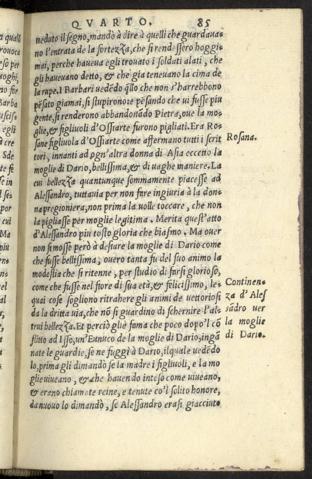 QVARTO. 85
neduto il segno, mandò à dire à quelli che guardauano
no l'entrata de la fortezza, che si rendessero hoggi
mai, perche haueua egli trouato i soldati alati, che
gli haueuano detto, & che già teneuano la cima de
la rupe. I Barbari uedēdo qllo che non s'harebbono
pēsato giamai, si stupirono: e pēsando che ui fusse piu
gente, si renderono abbandonādo Pietra, oue la mo
glie, & figliuoli d'Ossiarte furono pigliati. Era Ros
sane figliuola d'Ossiarte come affermano tutti i scrit
tori, innanti ad ogn'altra donna di Asia eccetto la
moglie di Dario, bellissima, & di uaghe maniere. La
cui bellezza quantunque sommamente piacesse ad
Alessandro, tuttauia per non fare ingiuria à la don
na pregioniera, non prima la uolle toccare, che non
la pigliasse per moglie legitima. Merita quest'atto
d'Alessandro piu tosto gloria che biasmo. Ma ouer
non si mosse però à desiare la moglie di Dario come
che fusse bellissima, ouero tanta fu del suo animo la
modestia che si ritenne, per studio di farsi glorioso,
come che fusse nel fiore di sua età, & felicissimo, le
quai cose sogliono ritrahere gli animi de uettoriosi
da la dritta uia, che nō si guardino di schernire l'al
trui bellezza. Et perciò gliè fama che poco dopo'l cō
flitto ad Isso, un'Eunuco de la moglie di Dario, ingā
nate le guardie, se ne fuggì à Dario, ilquale uedēdo
lo, prima gli dimandò se la madre i figliuoli, e la mo
glie uiueano, & che hauendo inteso come uiueano,
& erano chiamate reine, e tenute co'l solito honore,
da nuouo lo dimandò, se Alessandro erasi giacciuto
Rosana.
Continen
za d'Ales
sādro uer
la moglie
di Dario.